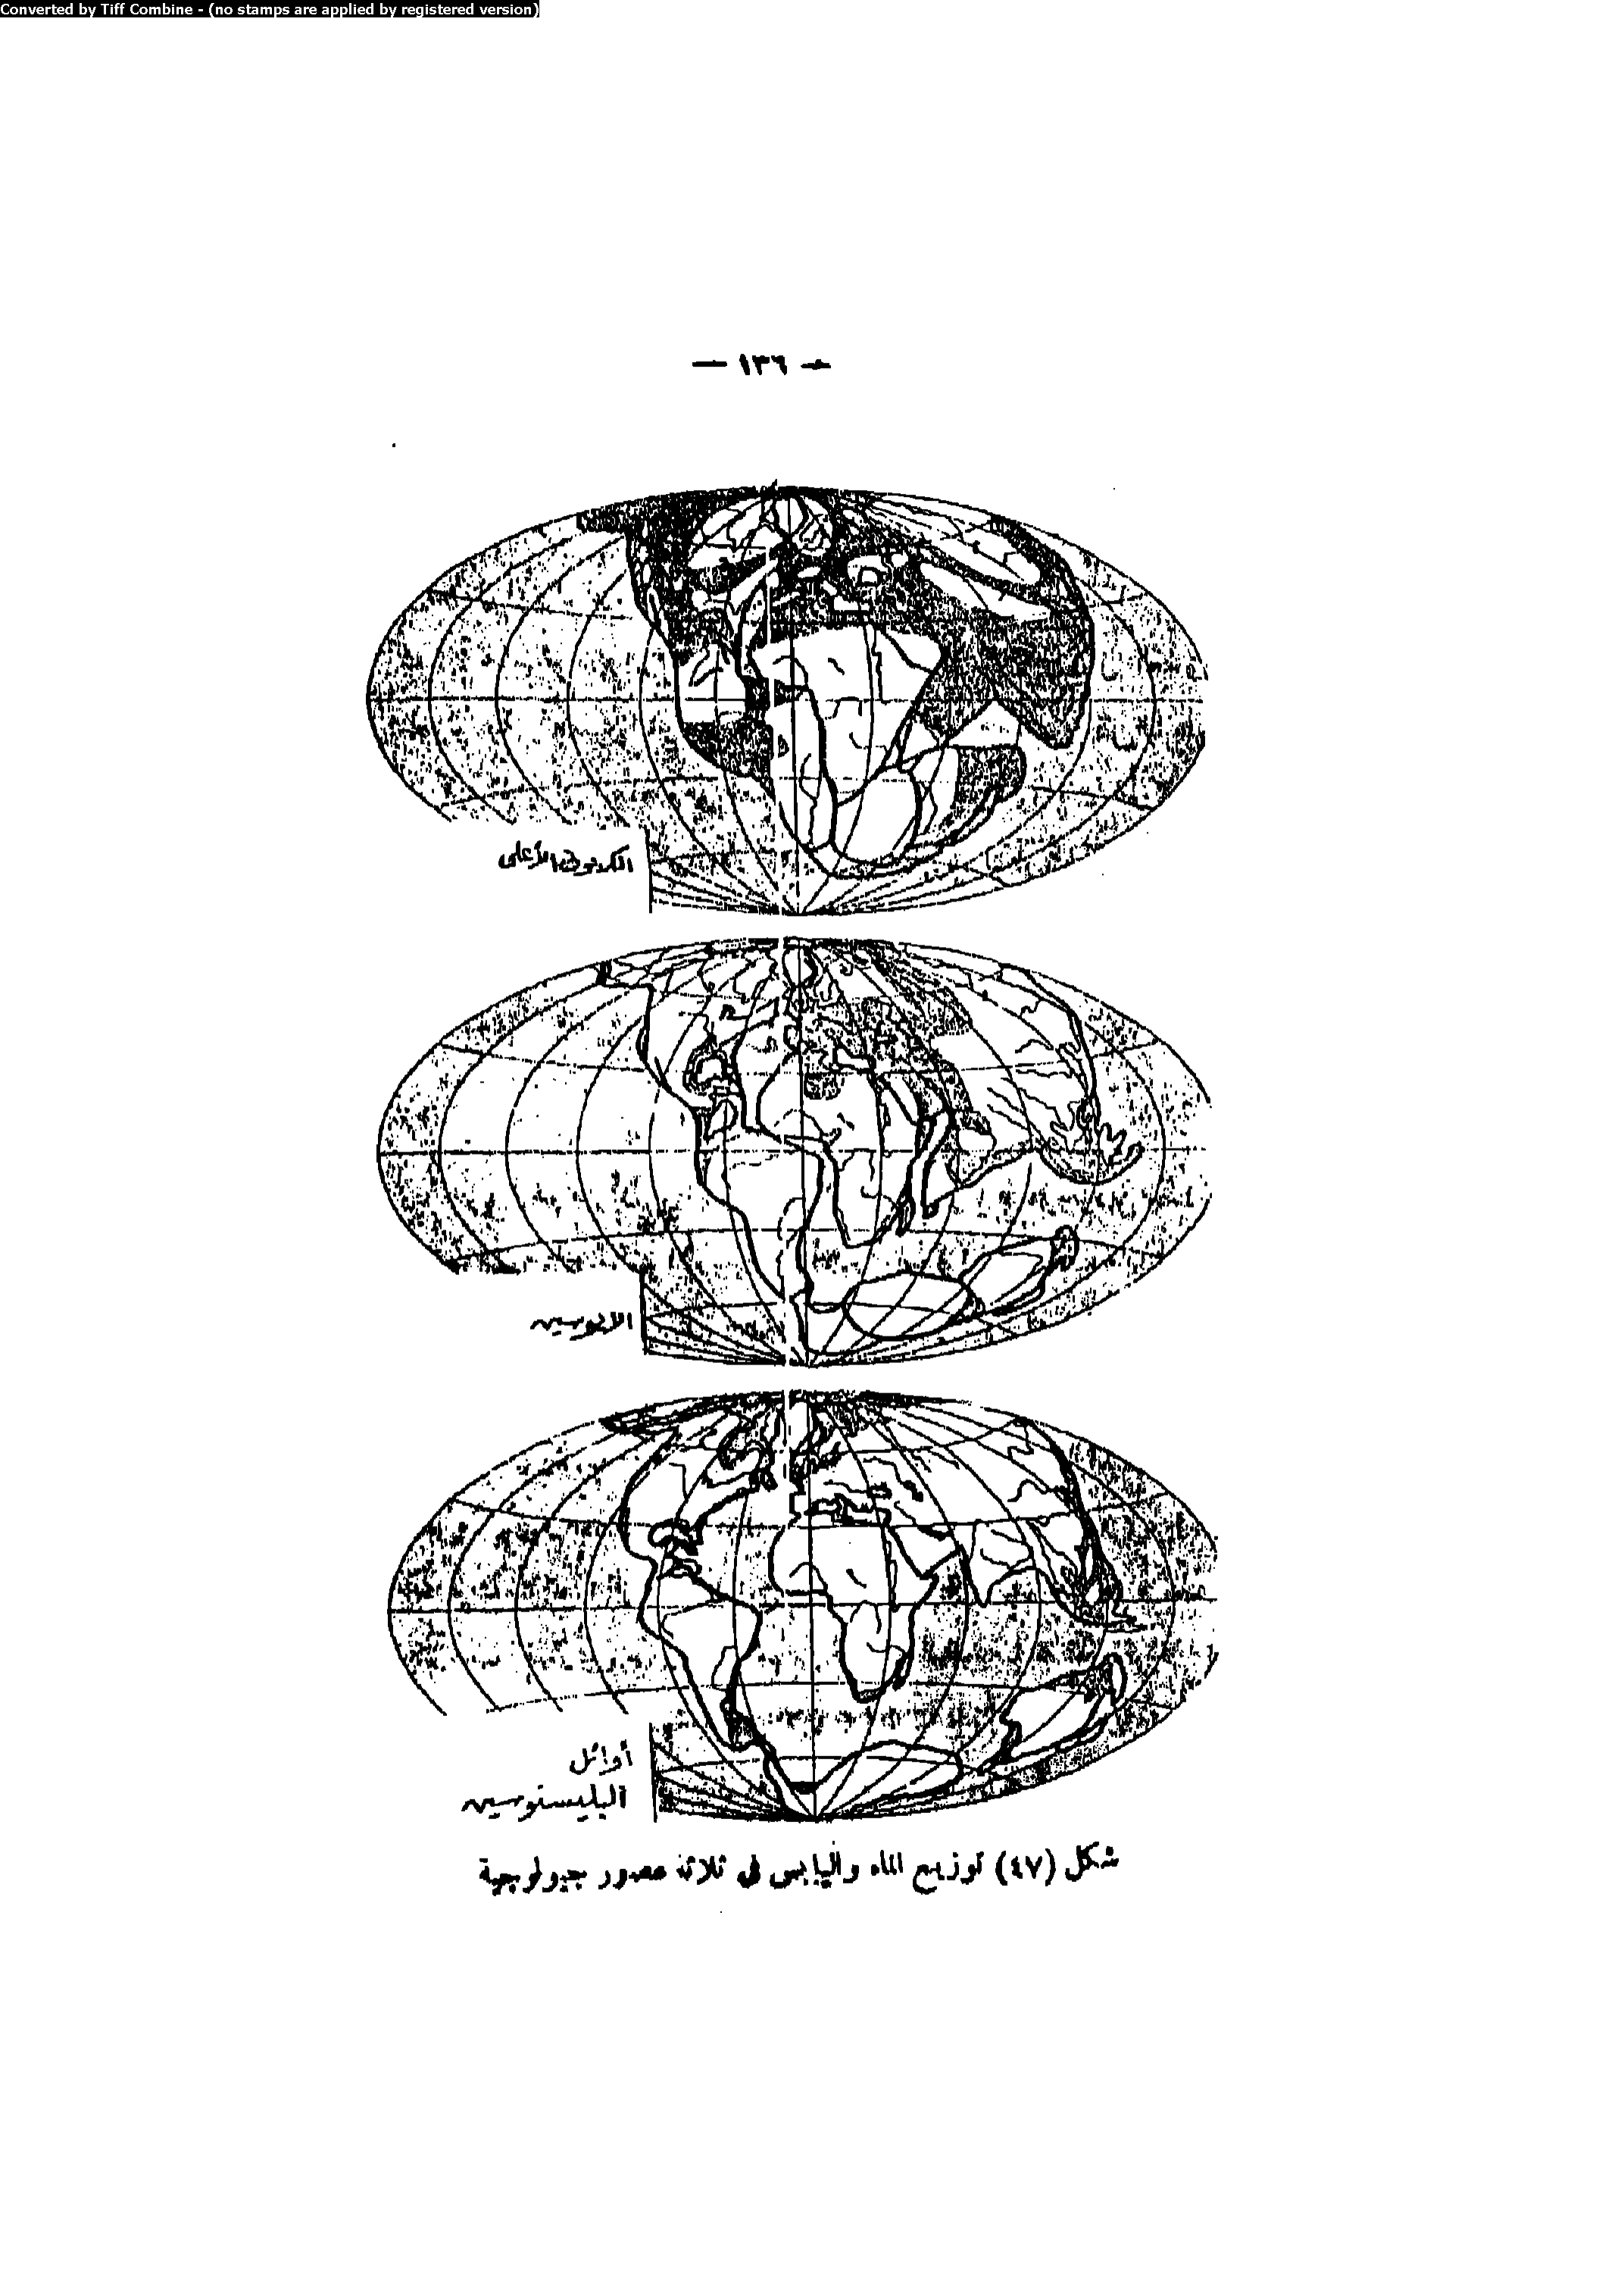 Converted by Tiff Combine - (no stamps are applied by registered version)
— ١٣٦ —
الكربوني الأعلى
الايوسين
أوائل
البليستوسين
شكل (٤٧) توزيع الماء واليابس في ثلاثة عصور جيولوجية